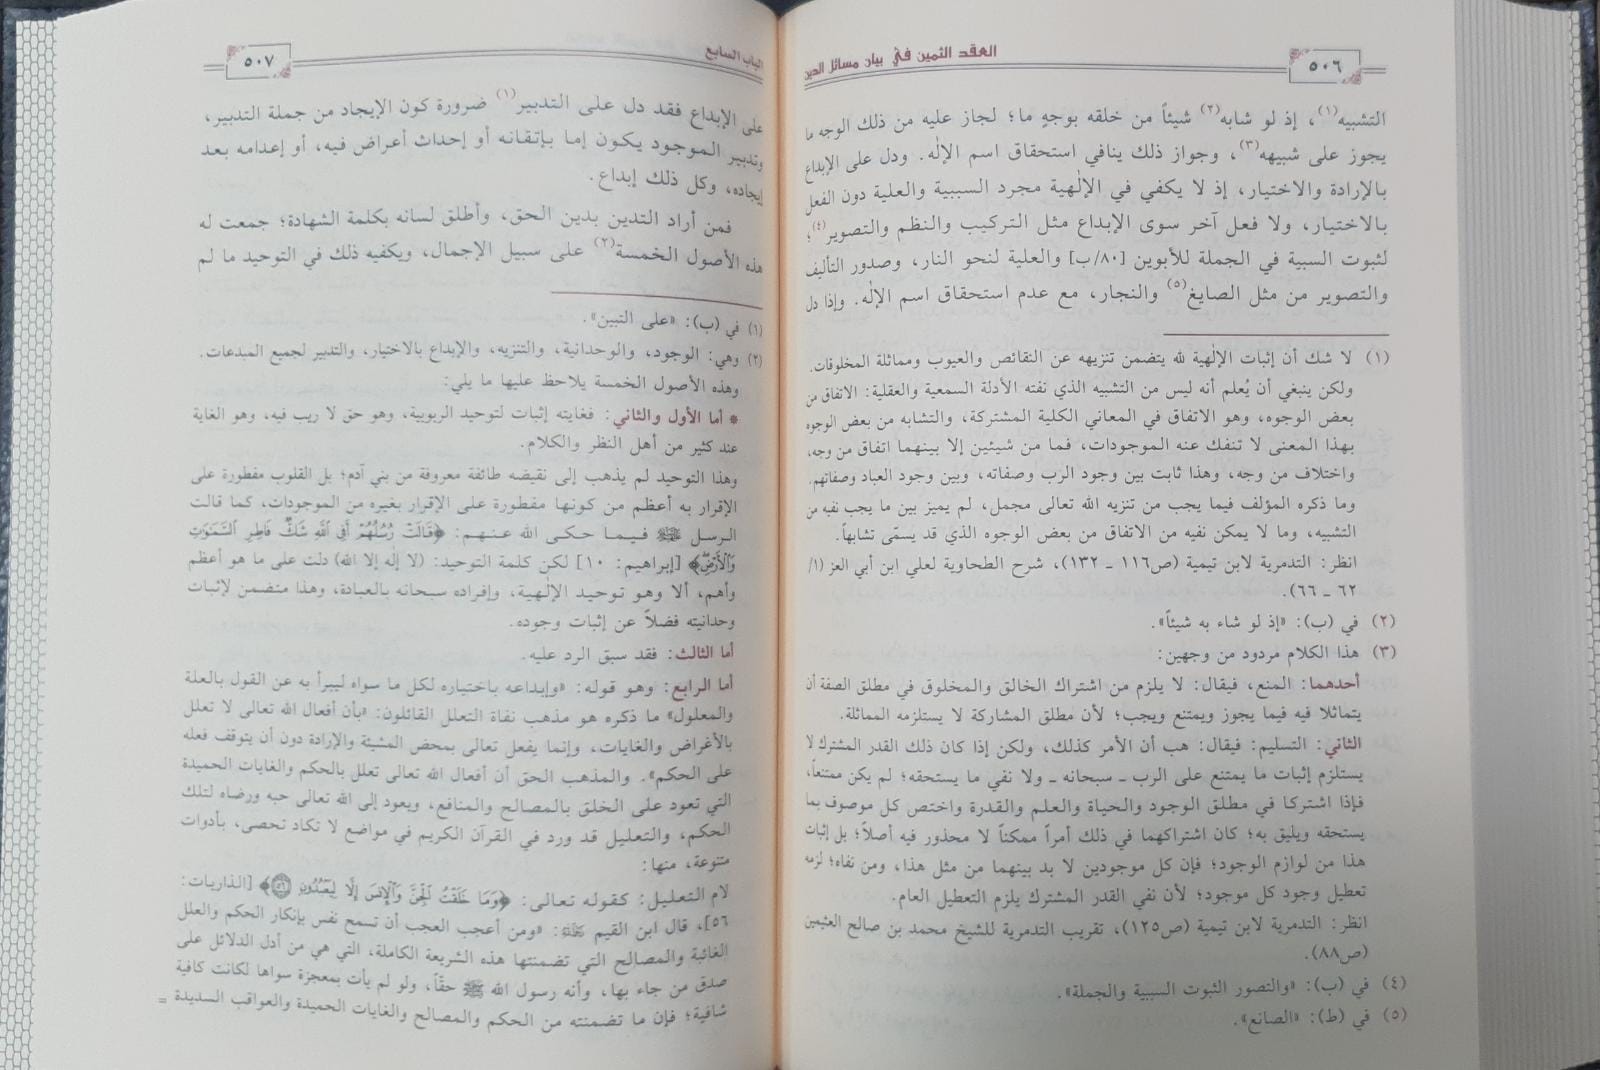 ٥٠٦
العقد الثمين في بيان مسائل الدين
التشبيه(١)، إذ لو شابه(٢) شيئاً من خلقه بوجهٍ ما؛ لجاز عليه من ذلك الوجه ما
يجوز على شبيهه(٣)، وجواز ذلك ينافي استحقاق اسم الإلٰه. ودل على الإبداع
بالإرادة والاختيار، إذ لا يكفي في الإلٰهية مجرد السببية والعلية دون الفعل
بالاختيار، ولا فعل آخر سوى الإبداع مثل التركيب والنظم والتصوير(٤)؛
لثبوت السببة في الجملة للأبوين [٨٠/ب] والعلية لنحو النار، وصدور التأليف
والتصوير من مثل الصايغ(٥) والنجار، مع عدم استحقاق اسم الإلٰه. وإذا دل
(١) لا شك أن إثبات الإلٰهية لله يتضمن تنزيهه عن النقائص والعيوب ومماثلة المخلوقات.
ولكن ينبغي أن يُعلم أنه ليس من التشبيه الذي نفته الأدلة السمعية والعقلية: الاتفاق من
بعض الوجوه، وهو الاتفاق في المعاني الكلية المشتركة، والتشابه من بعض الوجوه
بهذا المعنى لا تنفك عنه الموجودات، فما من شيئين إلا بينهما اتفاق من وجه،
واختلاف من وجه، وهذا ثابت بين وجود الرب وصفاته، وبين وجود العباد وصفاتهم.
وما ذكره المؤلف فيما يجب من تنزيه الله تعالى مجمل، لم يميز بين ما يجب نفيه من
التشبيه، وما لا يمكن نفيه من الاتفاق من بعض الوجوه الذي قد يسمّى تشابهاً.
انظر: التدمرية لابن تيمية (ص١١٦ ـ ١٣٢)، شرح الطحاوية لعلي ابن أبي العز (١/
٦٢ ـ ٦٦).
(٢) في (ب): «إذ لو شاء به شيئاً».
(٣) هذا الكلام مردود من وجهين:
أحدهما: المنع، فيقال: لا يلزم من اشتراك الخالق والمخلوق في مطلق الصفة أن
يتماثلا فيه فيما يجوز ويمتنع ويجب؛ لأن مطلق المشاركة لا يستلزمه المماثلة.
الثاني: التسليم: فيقال: هب أن الأمر كذلك، ولكن إذا كان ذلك القدر المشترك لا
يستلزم إثبات ما يمتنع على الرب ـ سبحانه ـ ولا نفي ما يستحقه؛ لم يكن ممتنعاً،
فإذا اشتركا في مطلق الوجود والحياة والعلم والقدرة واختص كل موصوف بما
يستحقه ويليق به؛ كان اشتراكهما في ذلك أمراً ممكناً لا محذور فيه أصلاً؛ بل إثبات
هذا من لوازم الوجود؛ فإن كل موجودين لا بد بينهما من مثل هذا، ومن نفاه؛ لزمه
تعطيل وجود كل موجود؛ لأن نفي القدر المشترك يلزم التعطيل العام.
انظر: التدمرية لابن تيمية (ص١٢٥)، تقريب التدمرية للشيخ محمد بن صالح العثيمين
(ص٨٨).
(٤) في (ب): «والتصور الثبوت السببية والجملة».
(٥) في (ط): «الصانع».
الباب السابع
٥٠٧
على الإبداع فقد دل على التدبير(١) ضرورة كون الإيجاد من جملة التدبير،
وتدبير الموجود يكون إما بإتقانه أو إحداث أعراض فيه، أو إعدامه بعد
إيجاده، وكل ذلك إبداع.
فمن أراد التدين بدين الحق، وأطلق لسانه بكلمة الشهادة؛ جمعت له
هذه الأصول الخمسة(٢) على سبيل الإجمال، ويكفيه ذلك في التوحيد ما لم
(١) في (ب): «على التبين».
(٢) وهي: الوجود، والوحدانية، والتنزيه، والإبداع بالاختيار، والتدبير لجميع المبدعات.
وهذه الأصول الخمسة يلاحظ عليها ما يلي:
* أما الأول والثاني: فغايته إثبات لتوحيد الربوبية، وهو حق لا ريب فيه، وهو الغاية
عند كثير من أهل النظر والكلام.
وهذا التوحيد لم يذهب إلى نقيضه طائفة معروفة من بني آدم؛ بل القلوب مفطورة على
الإقرار به أعظم من كونها مفطورة على الإقرار بغيره من الموجودات، كما قالت
الرسل ﷺ فيما حكى الله عنهم: ﴿قَالَتْ رُسُلُهُمْ أَفِي ٱللَّهِ شَكٌّ فَاطِرِ ٱلسَّمَٰوَٰتِ
وَٱلْأَرْضِ﴾ [إبراهيم: ١٠] لكن كلمة التوحيد: (لا إلٰه إلا الله) دلت على ما هو أعظم
وأهم، ألا وهو توحيد الإلٰهية، وإفراده سبحانه بالعبادة، وهذا متضمن لإثبات
وحدانيته فضلاً عن إثبات وجوده.
أما الثالث: فقد سبق الرد عليه.
أما الرابع: وهو قوله: «وإبداعه باختياره لكل ما سواه ليبرأ به عن القول بالعلة
والمعلول» ما ذكره هو مذهب نفاة التعلل القائلون: «بأن أفعال الله تعالى لا تعلل
بالأغراض والغايات، وإنما يفعل تعالى بمحض المشيئة والإرادة دون أن يتوقف فعله
على الحكم». والمذهب الحق أن أفعال الله تعالى تعلل بالحكم والغايات الحميدة
التي تعود على الخلق بالمصالح والمنافع، ويعود إلى الله تعالى حبه ورضاه لتلك
الحكم، والتعليل قد ورد في القرآن الكريم في مواضع لا تكاد تحصى، بأدوات
متنوعة، منها:
لام التعليل: كقوله تعالى: ﴿وَمَا خَلَقْتُ ٱلْجِنَّ وَٱلْإِنسَ إِلَّا لِيَعْبُدُونِ ٥٦﴾ [الذاريات:
٥٦]، قال ابن القيم رحمه الله: «ومن أعجب العجب أن تسمح نفس بإنكار الحكم والعلل
الغائية والمصالح التي تضمنتها هذه الشريعة الكاملة، التي هي من أدل الدلائل على
صدق من جاء بها، وأنه رسول الله ﷺ حقّاً، ولو لم يأت بمعجزة سواها لكانت كافية
شافية؛ فإن ما تضمنته من الحكم والمصالح والغايات الحميدة والعواقب السديدة =